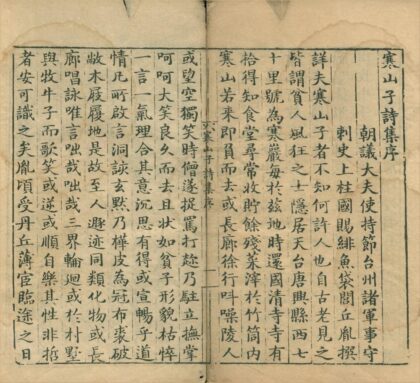 寒山子詩集序
朝議大夫使持節台州諸軍事守
刺史上柱國賜緋魚袋閭丘胤撰
詳夫寒山子者不知何許人也自古老見之
皆謂貧人風狂之士隱居天台唐興縣西七
十里號為寒巖每於茲地時還國清寺寺有
拾得知食堂尋常收貯餘殘菜滓於竹筒內
寒山若来即負而去或長廊徐行叫噪陵人
寒山子詩集序
或望空獨笑時僧遂捉罵打趂乃駐立撫掌
呵呵大笑良久而去且狀如貧子形貌枯悴
一言一氣理合其意沉思有得或宣暢乎道
情凡所啟言洞該玄黙乃樺皮為冠布裘破
敝木屐履地是故至人遯迹同類化物或長
廊唱詠唯言咄哉咄哉三界輪迴或於村墅
與牧牛子而歌笑或逆或順自樂其性非哲
者安可識之矣胤頃受丹丘薄宦臨途之日